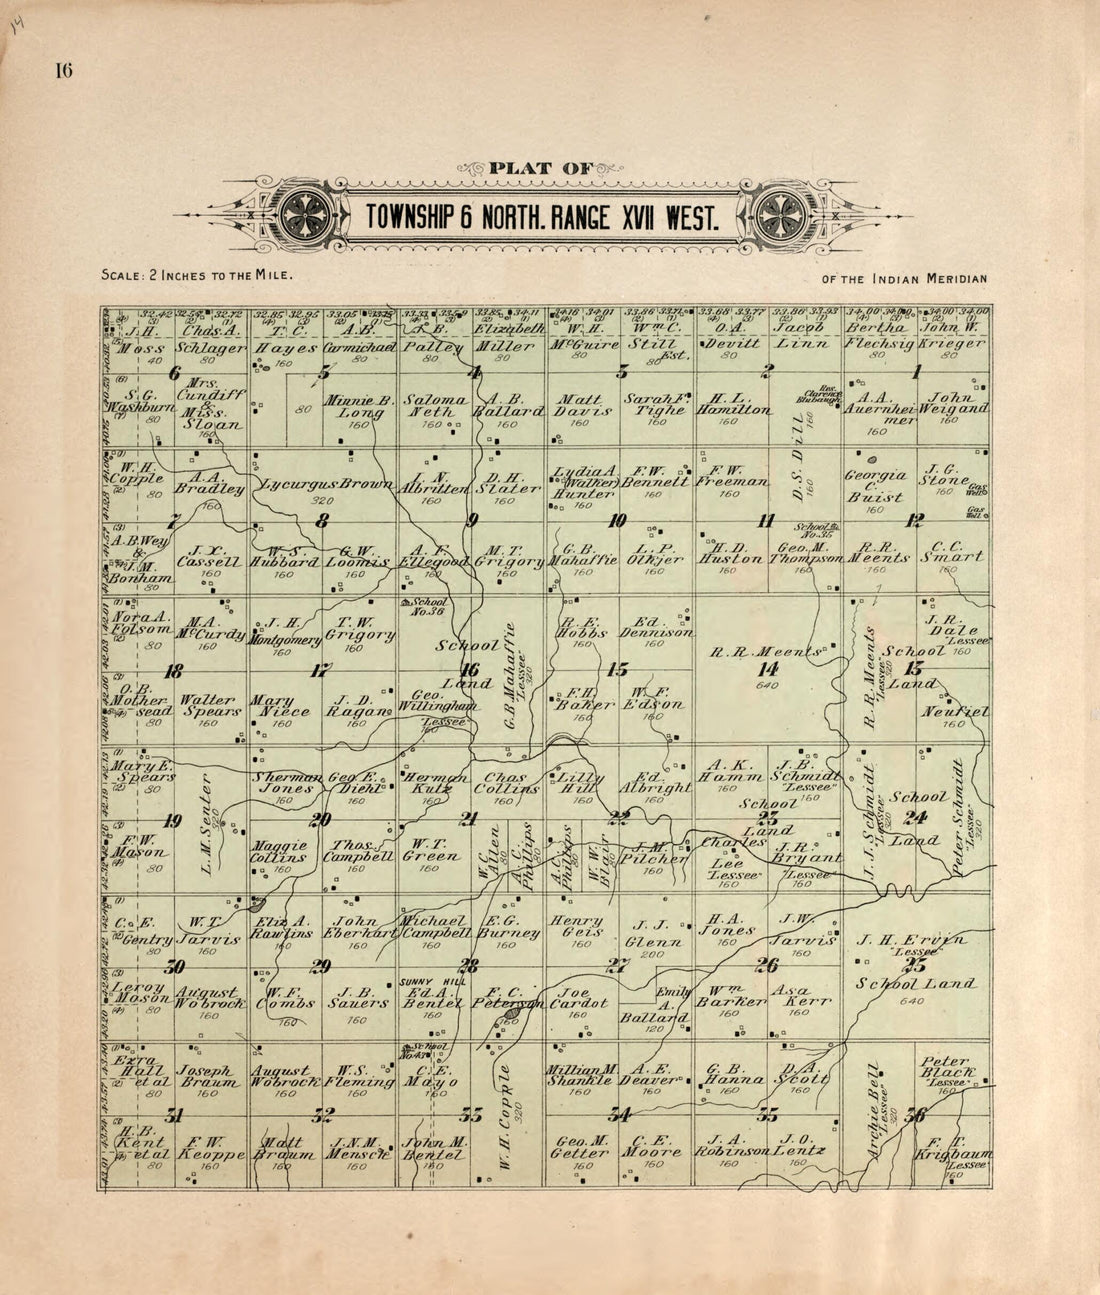 14
16
PLAT OF
TOWNSHIP 6 NORTH. RANGE XVII WEST.
SCALE: 2 INCHES TO THE MILE.
OF THE INDIAN MERIDIAN
J.H. Moss 40
Chas. A. Schlager 80
T. C. Hayes 160
A.B. Carmichael 80
J.B. Palley 80
Elizabeth Miller 80
W.H. McGuire 80
Wm C. Still Est. 80
O.A. Devitt 80
Jacob Linn 80
Bertha Flechsig 80
John W. Krieger 80
6
5
4
3
2
1
S.G. Washburn 80
Mrs. Cundiff & Miss. Sloan 160
80
Minnie B. Long 160
Saloma Neth 160
A.B. Ballard 160
Matt Davis 160
Sarah F. Tighe 160
H.L. Hamilton 160
D.S. Dill 160
Res. Clarence Blubaugh 160
A.A. Auernheimer 160
John Weigand 160
W.H. Copple 80
A.A. Bradley 160
Lycurgus Brown 320
L.N. Albritten 160
D.H. Slater 160
Lydia A. (Walker) Hunter 160
F.W. Bennett 160
F.W. Freeman 160
160
Georgia C. Buist 160
J.G. Stone 160
Gas Well
Gas Well
7
8
9
10
11
12
School No. 35
A.B. Wey & J.M. Bonham 80
J.X. Cassell 160
W.S. Hubbard 160
G.W. Loomis 160
A.F. Ellegood 160
M.T. Grigory 160
G.B. Mahaffie 160
L.P. Olkjer 160
H.D. Huston 160
Geo. M. Thompson 160
R.R. Meents 160
C.C. Smart 160
Nora A. Folsom 80
M.A. McCurdy 160
J.H. Montgomery 160
T.W. Grigory 160
School No. 36
School Land
G.B. Mahaffie "Lessee" 320
R.E. Hobbs 160
Ed. Dennison 160
R.R. Meents 640
R.R. Meents "Lessee" 320
School Land
J.R. Dale "Lessee" 160
18
17
16
15
14
13
O.B. Mothersead 80
Walter Spears 160
Mary Niece 160
J.D. Ragan 160
Geo. Willingham "Lessee" 160
F.H. Baker 160
W.F. Edson 160
Neufiel 160
Mary E. Spears 80
L.M. Senter 320
Sherman Jones 160
Geo. E. Diehl 160
Herman Kulz 160
Chas Collins 160
Lilly Hill 160
Ed. Albright 160
A.K. Hamm 160
J.B. Schmidt "Lessee" 160
School Land
J.J. Schmidt "Lessee" 320
School Land
Peter Schmidt "Lessee" 320
19
20
21
22
23
24
F.W. Mason 80
Maggie Collins 160
Thos. Campbell 160
W.T. Green 160
W.C. Allen 80
A.C. Phillips 80
A.C. Phillips 80
W.W. Blair 80
J.M. Pilcher 160
Charles Lee "Lessee" 160
J.R. Bryant "Lessee" 160
C.E. Gentry 80
W.T. Jarvis 160
Eliz A. Rawlins 160
John Eberhart 160
Michael Campbell 160
E.G. Burney 160
Henry Geis 160
J.J. Glenn 200
H.A. Jones 160
J.W. Jarvis 160
J.H. Ervin "Lessee"
School Land 640
30
29
28
27
26
25
Leroy Mason 80
August Wobrock 160
W.F. Combs 160
J.B. Sauers 160
SUNNY HILL
Ed. A. Bentel 160
F.C. Peterson 160
Joe Cardot 160
Emily A. Ballard 120
Wm Barker 160
Asa Kerr 160
Ezra Hall et al 80
Joseph Braum 160
August Wobrock 160
W.S. Fleming 160
School No. 43
C.E. Mayo 160
W.H. Copple 320
Millian M. Shankle 160
A.E. Deaver 160
G.B. Hanna 160
D.A. Scott 160
Archie Bell "Lessee" 320
Peter Black "Lessee" 160
31
32
33
34
35
36
H.B. Kent et al 80
F.W. Keoppe 160
Matt Braum 160
J.N.M. Mensch 160
John M. Bentel 160
Geo. M. Getter 160
C.E. Moore 160
J.A. Robinson 160
J.O. Lentz 160
F.T. Krigbaum "Lessee" 160